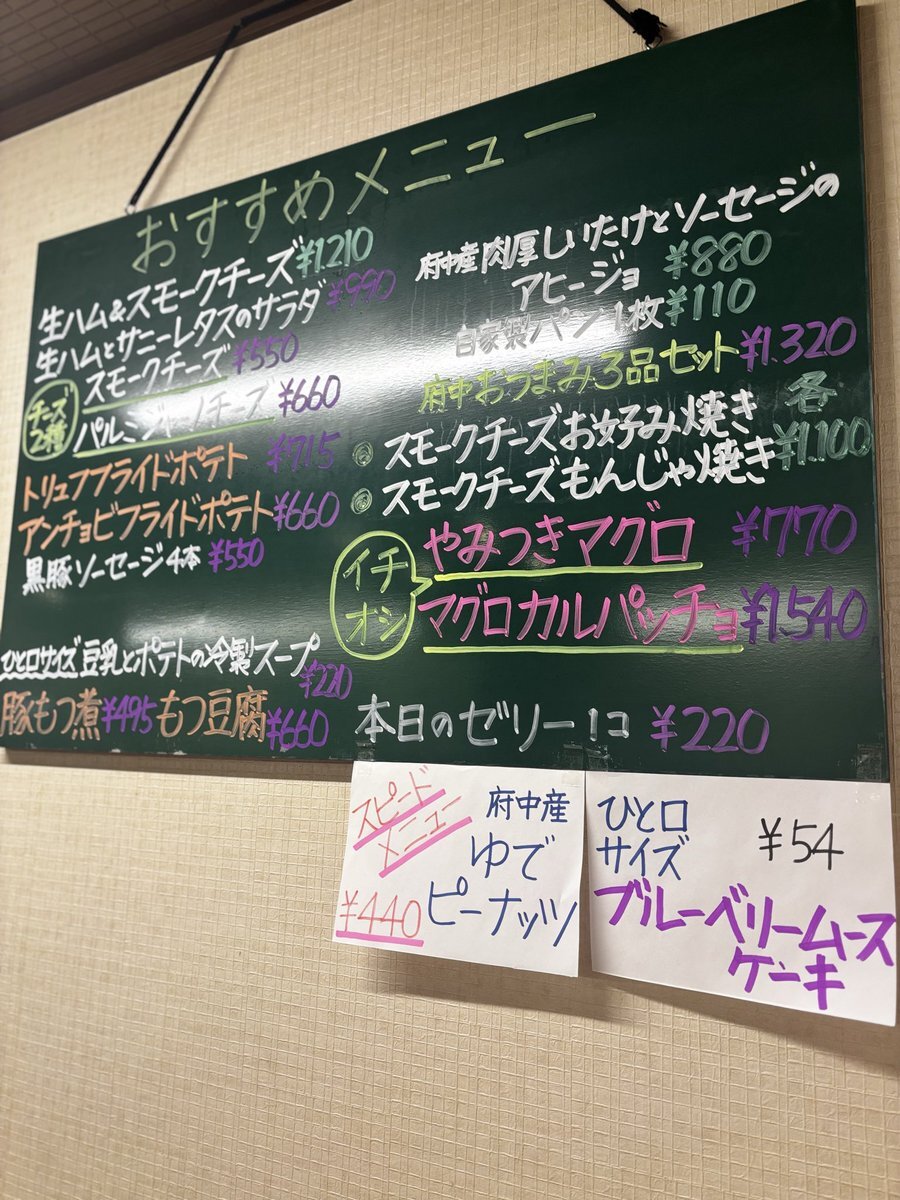 おすすめメニュー
生ハム&スモークチーズ ¥1.210
生ハムとサニーレタスのサラダ ¥990
チーズ2種
スモークチーズ ¥550
パルミジャーノチーズ ¥660
トリュフフライドポテト ¥715
アンチョビフライドポテト ¥660
黒豚ソーセージ4本 ¥550
ひと口サイズ 豆乳とポテトの冷製スープ ¥220
豚もつ煮 ¥495 もつ豆腐 ¥660
府中産肉厚しいたけとソーセージの
アヒージョ ¥880
自家製パン1枚 ¥110
府中おつまみ3品セット ¥1.320
スモークチーズお好み焼き 各
スモークチーズもんじゃ焼き ¥1.100
イチオシ
やみつきマグロ ¥770
マグロカルパッチョ ¥1.540
本日のゼリー1コ ¥220
スピード
メニュー
府中産
ゆで
ピーナッツ
¥440
ひと口
サイズ ¥54
ブルーベリームース
ケーキ